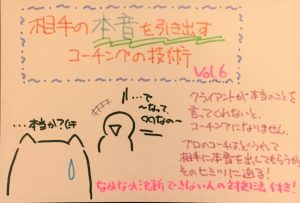 相手の本音を引き出す
コーチングの技術
Vol.6
…で
〜なって
〇〇なの〜
…本当か?(汗
クライアントが本当のことを
言ってくれないと、
コーチングになりません。
プロのコーチはどうやって
相手に本音を出してもらうか?
そのヒミツに迫る!
できない人の対処法 付き!